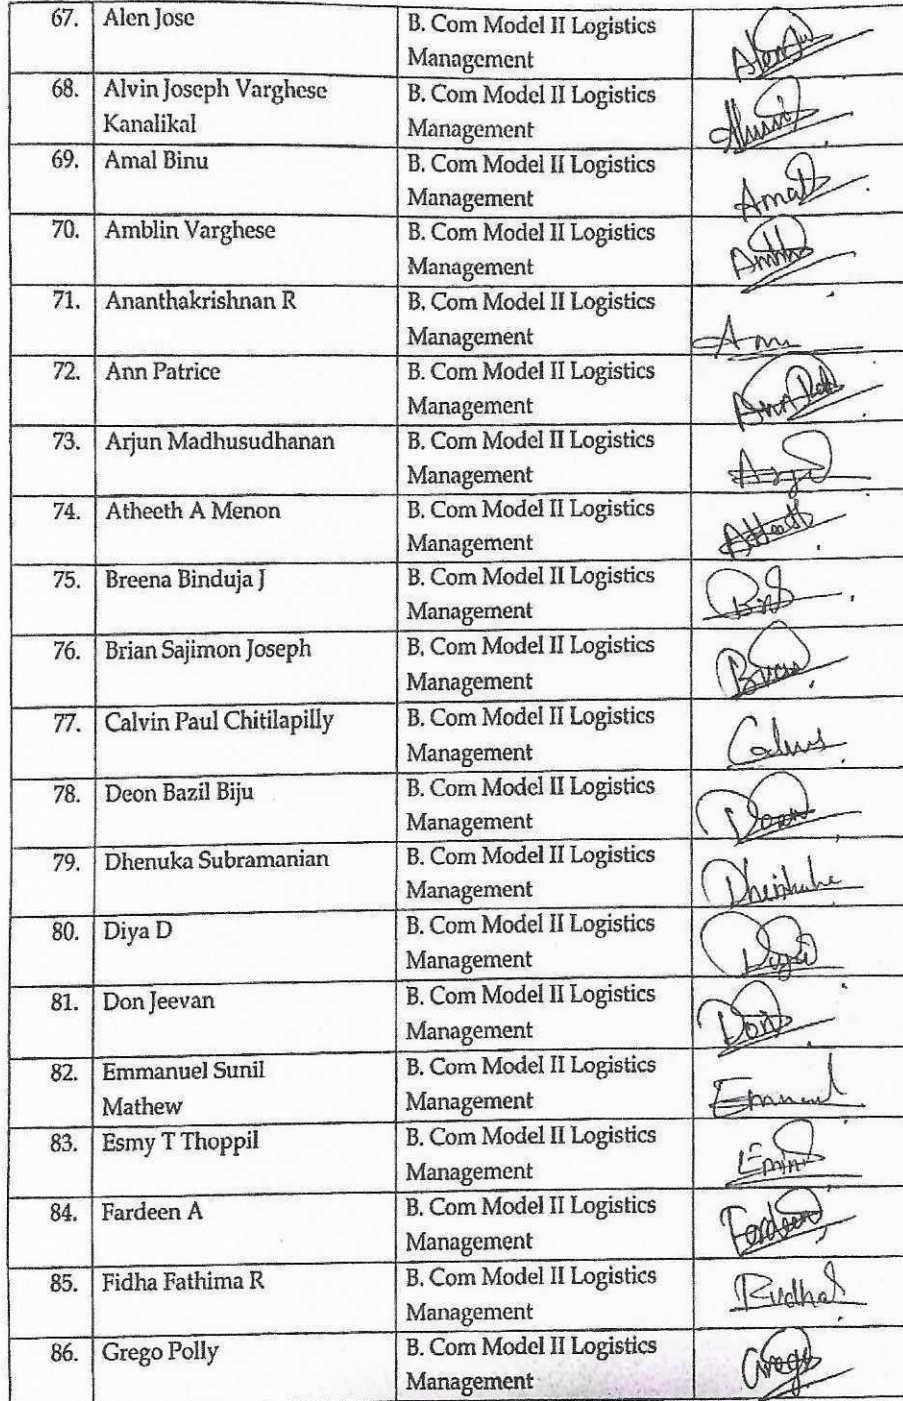 67. Alen Jose B. Com Model II Logistics
Management Alen
68. Alvin Joseph Varghese B. Com Model II Logistics
Kanalikal Management
69. Amal Binu B. Com Model II Logistics
Management Amal
70. Amblin Varghese B. Com Model II Logistics
Management
71. Ananthakrishnan R B. Com Model II Logistics
Management
72. Ann Patrice B. Com Model II Logistics
Management
73. Arjun Madhusudhanan B. Com Model II Logistics
Management
74. Atheeth A Menon B. Com Model II Logistics
Management
75. Breena Binduja J B. Com Model II Logistics
Management
76. Brian Sajimon Joseph B. Com Model II Logistics
Management
77. Calvin Paul Chitilapilly B. Com Model II Logistics
Management
78. Deon Bazil Biju B. Com Model II Logistics
Management
79. Dhenuka Subramanian B. Com Model II Logistics
Management
80. Diya D B. Com Model II Logistics
Management
81. Don Jeevan B. Com Model II Logistics
Management Don
82. Emmanuel Sunil B. Com Model II Logistics
Mathew Management
83. Esmy T Thoppil B. Com Model II Logistics
Management
84. Fardeen A B. Com Model II Logistics
Management Fardeen
85. Fidha Fathima R B. Com Model II Logistics
Management
86. Grego Polly B. Com Model II Logistics
Management Grego